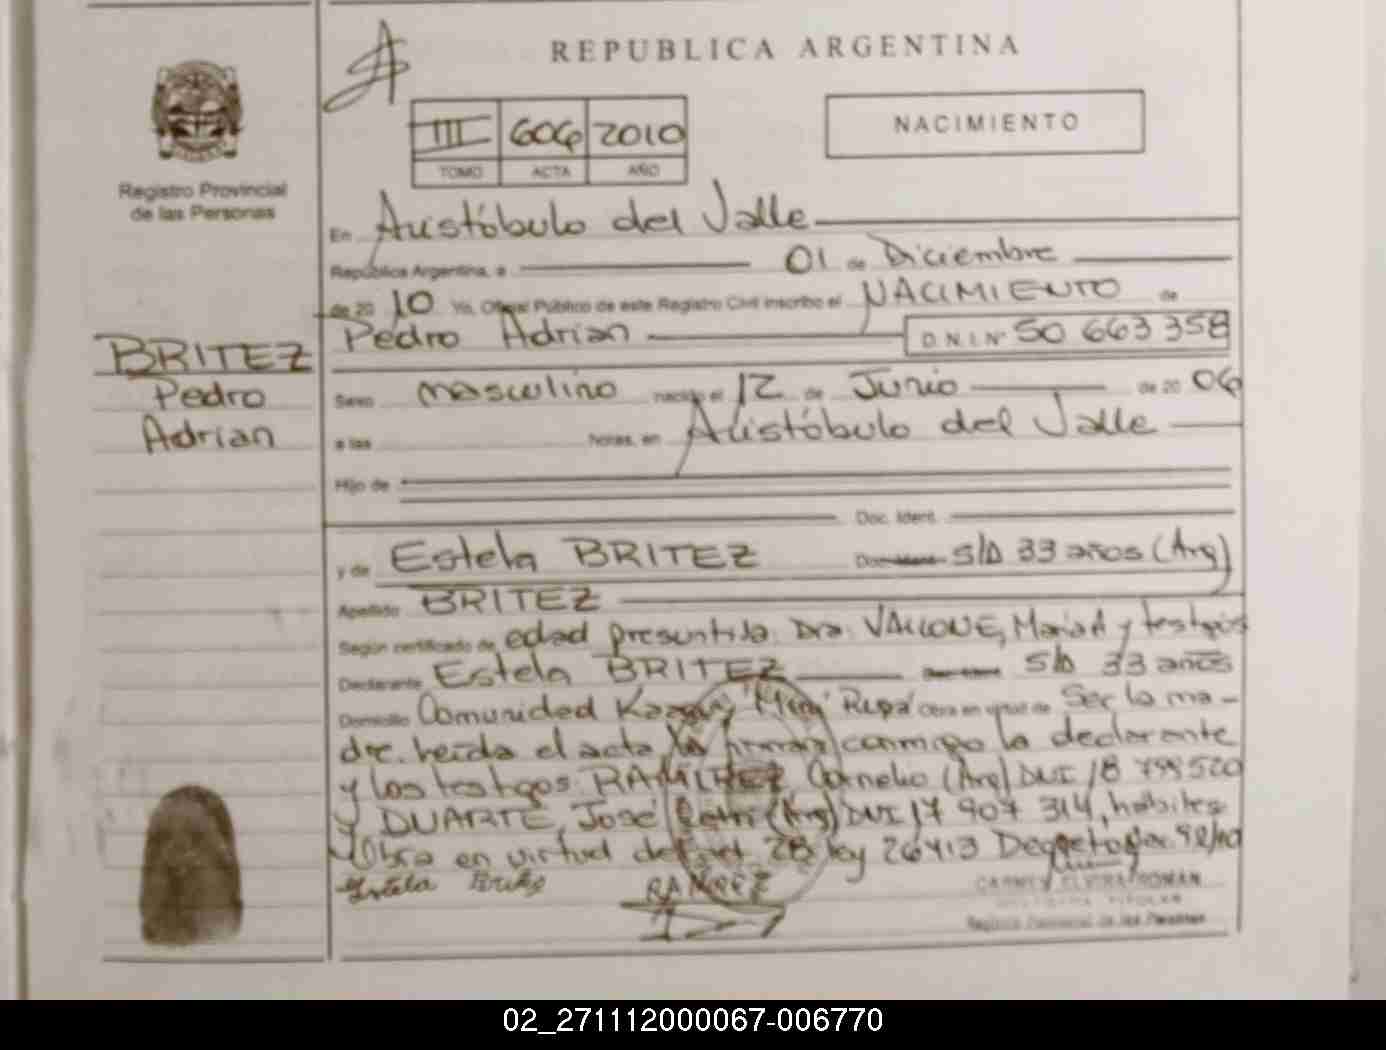 REPUBLICA ARGENTINA
III 606 2010
TOMO ACTA AÑO
NACIMIENTO
Registro Provincial
de las Personas
En Aristóbulo del Valle
República Argentina, a 01 de Diciembre
de 20 10 Yo, Oficial Público de este Registro Civil inscribo el NACIMIENTO de
Pedro Adrian D.N.I. Nº 50 663 358
BRITEZ
Pedro
Adrian
Sexo masculino nacido el 12 de Junio de 20 06
a las Horas, en Aristóbulo del Valle
Hijo de
Doc. Ident.
y de Estela BRITEZ Doc. Ident. S/D 33 años (Arg)
Apellido BRITEZ
Según certificado de edad presuntiva Dra. VALLONE, María A y testigos
Declarante Estela BRITEZ S/D 33 años
Domicilio Comunidad Kaaguy Miri Rupa Obra en virtud de Ser la ma-
dre. Leída el acta la firman conmigo la declarante
y los testigos: RAMIREZ Cornelio (Arg) DNI 18 799 520
y DUARTE, José (Arg) DNI 17 907 314, hábiles
Obra en virtud del art 28 ley 26413 Decreto 92/10
Estela Brites
RAMIREZ
CARMEN ELVIRA ROMÁN
Registro Provincial de las Personas
02_271112000067-006770